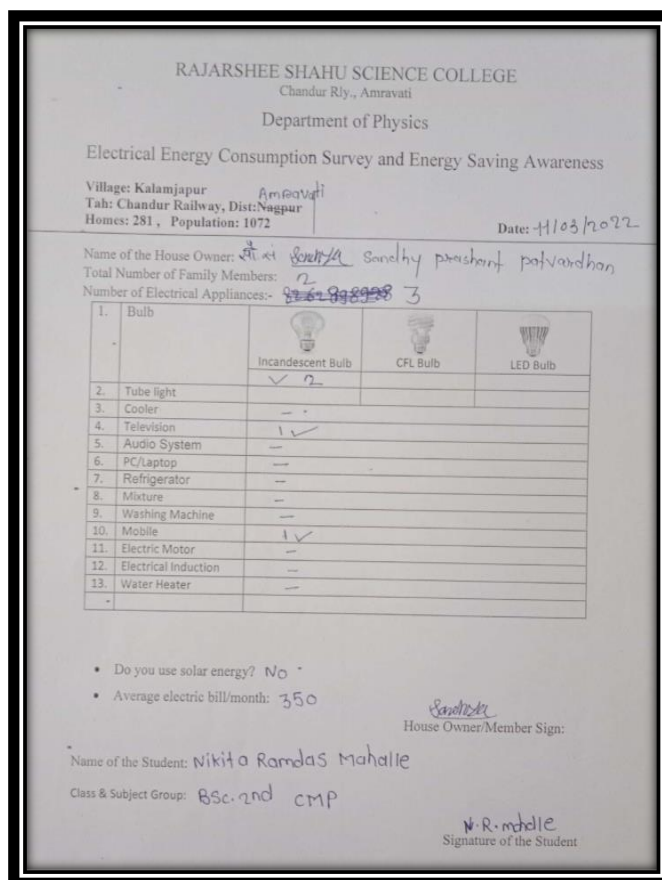 RAJARSHEE SHAHU SCIENCE COLLEGE
Chandur Rly., Amravati
Department of Physics
Electrical Energy Consumption Survey and Energy Saving Awareness
Village: Kalamjapur
Amravati
Tah: Chandur Railway, Dist:Nagpur
Homes: 281 , Population: 1072
Date: 11/03/2022
Name of the House Owner: सौ Sandhy prashant patvardhan
Total Number of Family Members: 2
Number of Electrical Appliances:- 3
1. Bulb
Incandescent Bulb CFL Bulb LED Bulb
✓ 2
2. Tube light
3. Cooler –
4. Television 1 ✓
5. Audio System –
6. PC/Laptop –
7. Refrigerator –
8. Mixture –
9. Washing Machine –
10. Mobile 1 ✓
11. Electric Motor –
12. Electrical Induction –
13. Water Heater –
• Do you use solar energy? No
• Average electric bill/month: 350
House Owner/Member Sign:
Name of the Student: Nikita Ramdas Mahalle
Class & Subject Group: BSc. 2nd CMP
N. R. mahalle
Signature of the Student